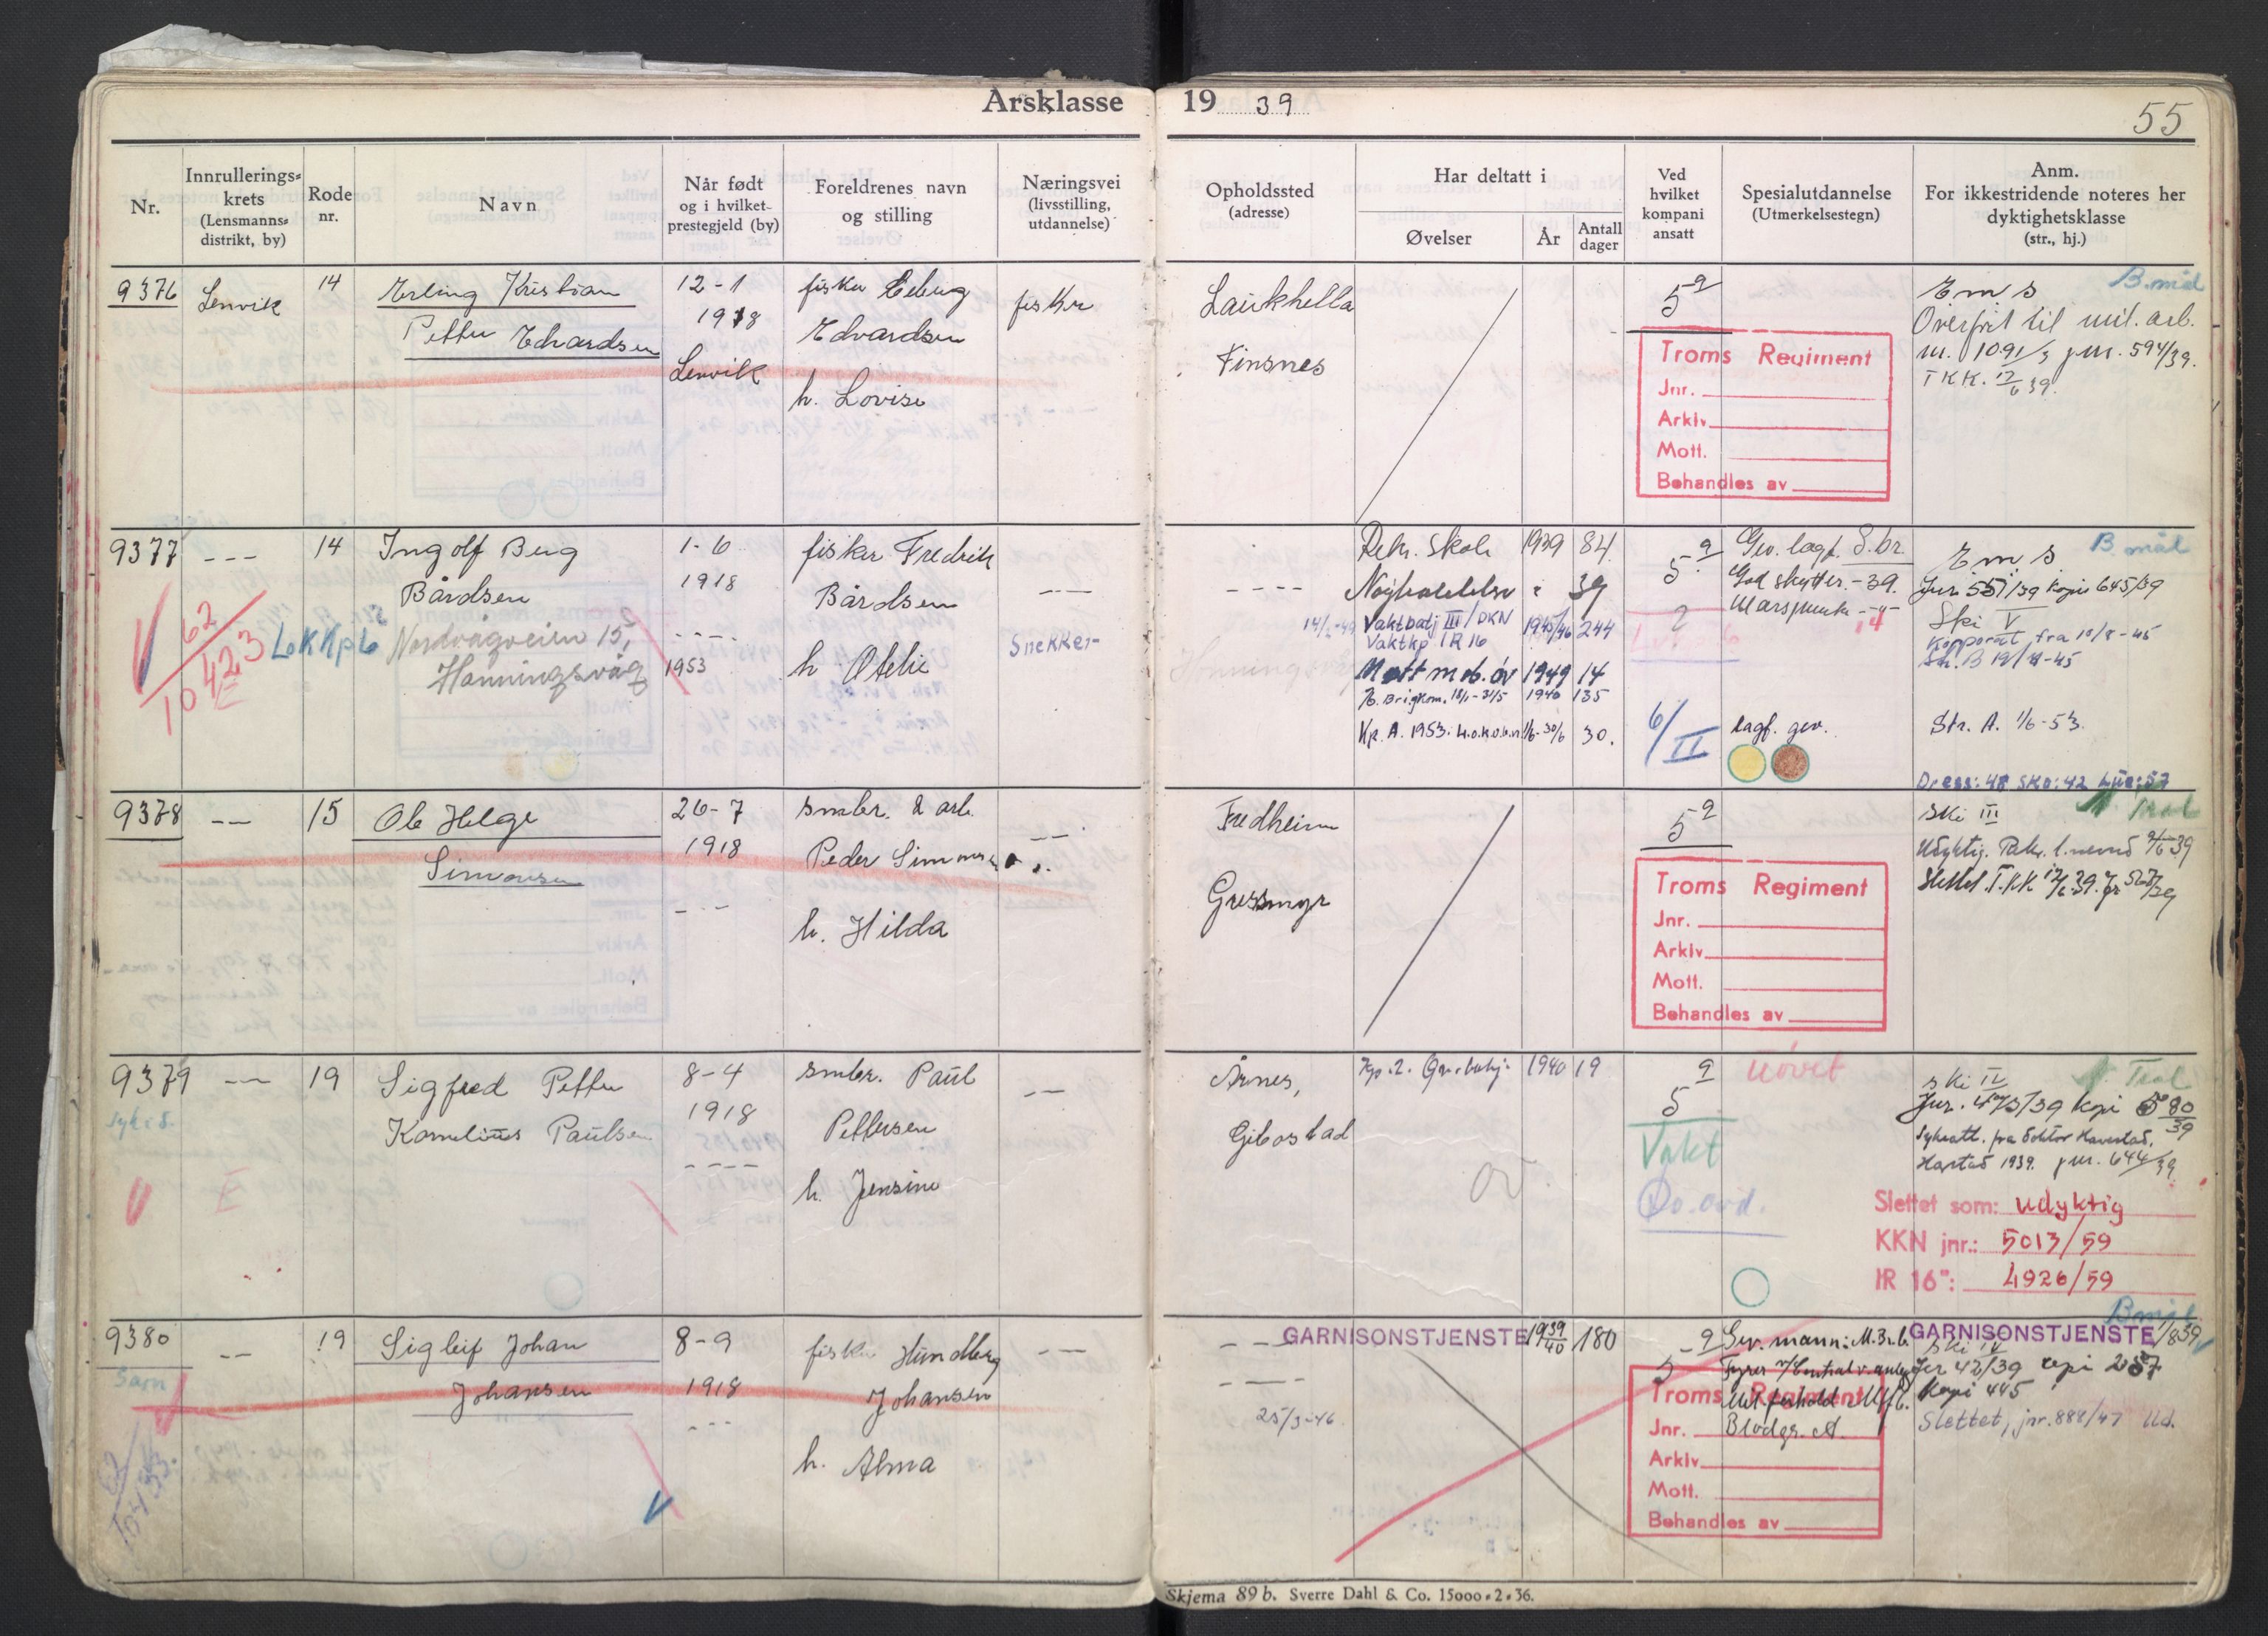 Årsklasse 19 39
55
Nr.
Innrullerings-
krets
(Lensmanns-
distrikt, by)
Rode
nr.
Navn
Når født
og i hvilket
prestegjeld (by)
Foreldrenes navn
og stilling
Næringsvei
(livsstilling,
utdannelse)
Opholdssted
(adresse)
Har deltatt i
Øvelser
År
Antall
dager
Ved
hvilket
kompani
ansatt
Spesialutdannelse
(Utmerkelsestegn)
Anm.
For ikkestridende noteres her
dyktighetsklasse
(str., hj.)
9376
Lenvik
14
Erling Kristian
Petter Edvardsen
12-1
1918
Lenvik
fisker
Edvardsen
h. Lovise
fisker
Laukhella
Finsnes
5
Troms Regiment
Jnr.
Arkiv
Mott.
Behandles av
B. mål
E m s
Overført til mil. arb.
m. 1091/3 jnr. 594/39.
TKK. 12/6 39.
9377
---
14
Ingolf Berg
Bårdsen
Nordvågveien 15,
Honningsvåg
62
10423
E
LoKKp 6
1-6
1918
----
1953
fisker Fredrik
Bårdsen
h Otelie
---
Snekker
----
14/5-49
Honningsvåg
Rekr. skole 1939 84
39
Vaktbatj III/DKN 1945/46 244
Vaktkp IR 16
Mott mob. øv 1949 14
6. Brigkom. 18/1-31/5 1940 135
Kp. A. 1953. 1/6-30/6 30.
5
6/II
Gev. lagf. S.br.
God skytter. -39.
Marsjmerke -"-
lagf. gev.
B mål
E m s
Jnr. 551/39 kopi 645/39
Ski V
Korporal fra 10/8-45
Str. B 19/4-45
Str. A. 1/6-53.
Dress: 48 Sko: 42 Lue: 57
9378
---
15
Ole Helge
Simonsen
26-7
1918
---
smbr. & arb.
Peder Simonsen
h. Hilda
---
Fredheim
Gressmyr
5
Troms Regiment
Jnr.
Arkiv
Mott.
Behandles av
N. Trål
Ski III
Udyktig. Rekr. l. nevnd 9/6 39
Slettet. T.KK. 12/6 39.
9379
---
19
Sigfred Petter
Kornelius Paulsen
E
8-4
1918
----
smbr. Paul
Pettersen
h. Jensine
---
Årnes,
Gibostad
Kp. 2. 1940 19
5
Vakt
Do. ord.
uøvet
N. Trål
Ski IV
Jnr. 473/39 kopi 580/39
Sykeatt. fra doktor Havnstad,
Harstad 1939. jnr. 644/39
Slettet som: udyktig
KKN jnr.: 5013/59
IR 16": 4926/59
9380
---
19
Sigleif Johan
Johansen
San
8-9
1918
---
fisker Hundberg
Johansen
h. Alma
---
----
25/3-46
GARNISONSTJENSTE 1939/40 180
5
Gev. mann: M.3r.b.
Mil forhold
Blodgr. A
Troms Regiment
Jnr.
Arkiv
Mott.
Behandles av
B mål
GARNISONSTJENSTE
Ski IV
Jnr 42/39 kopi 257
Kopi 445
Slettet, jnr. 888/47 Ud.
Skjema 89 b. Sverre Dahl & Co. 15000-2-36.